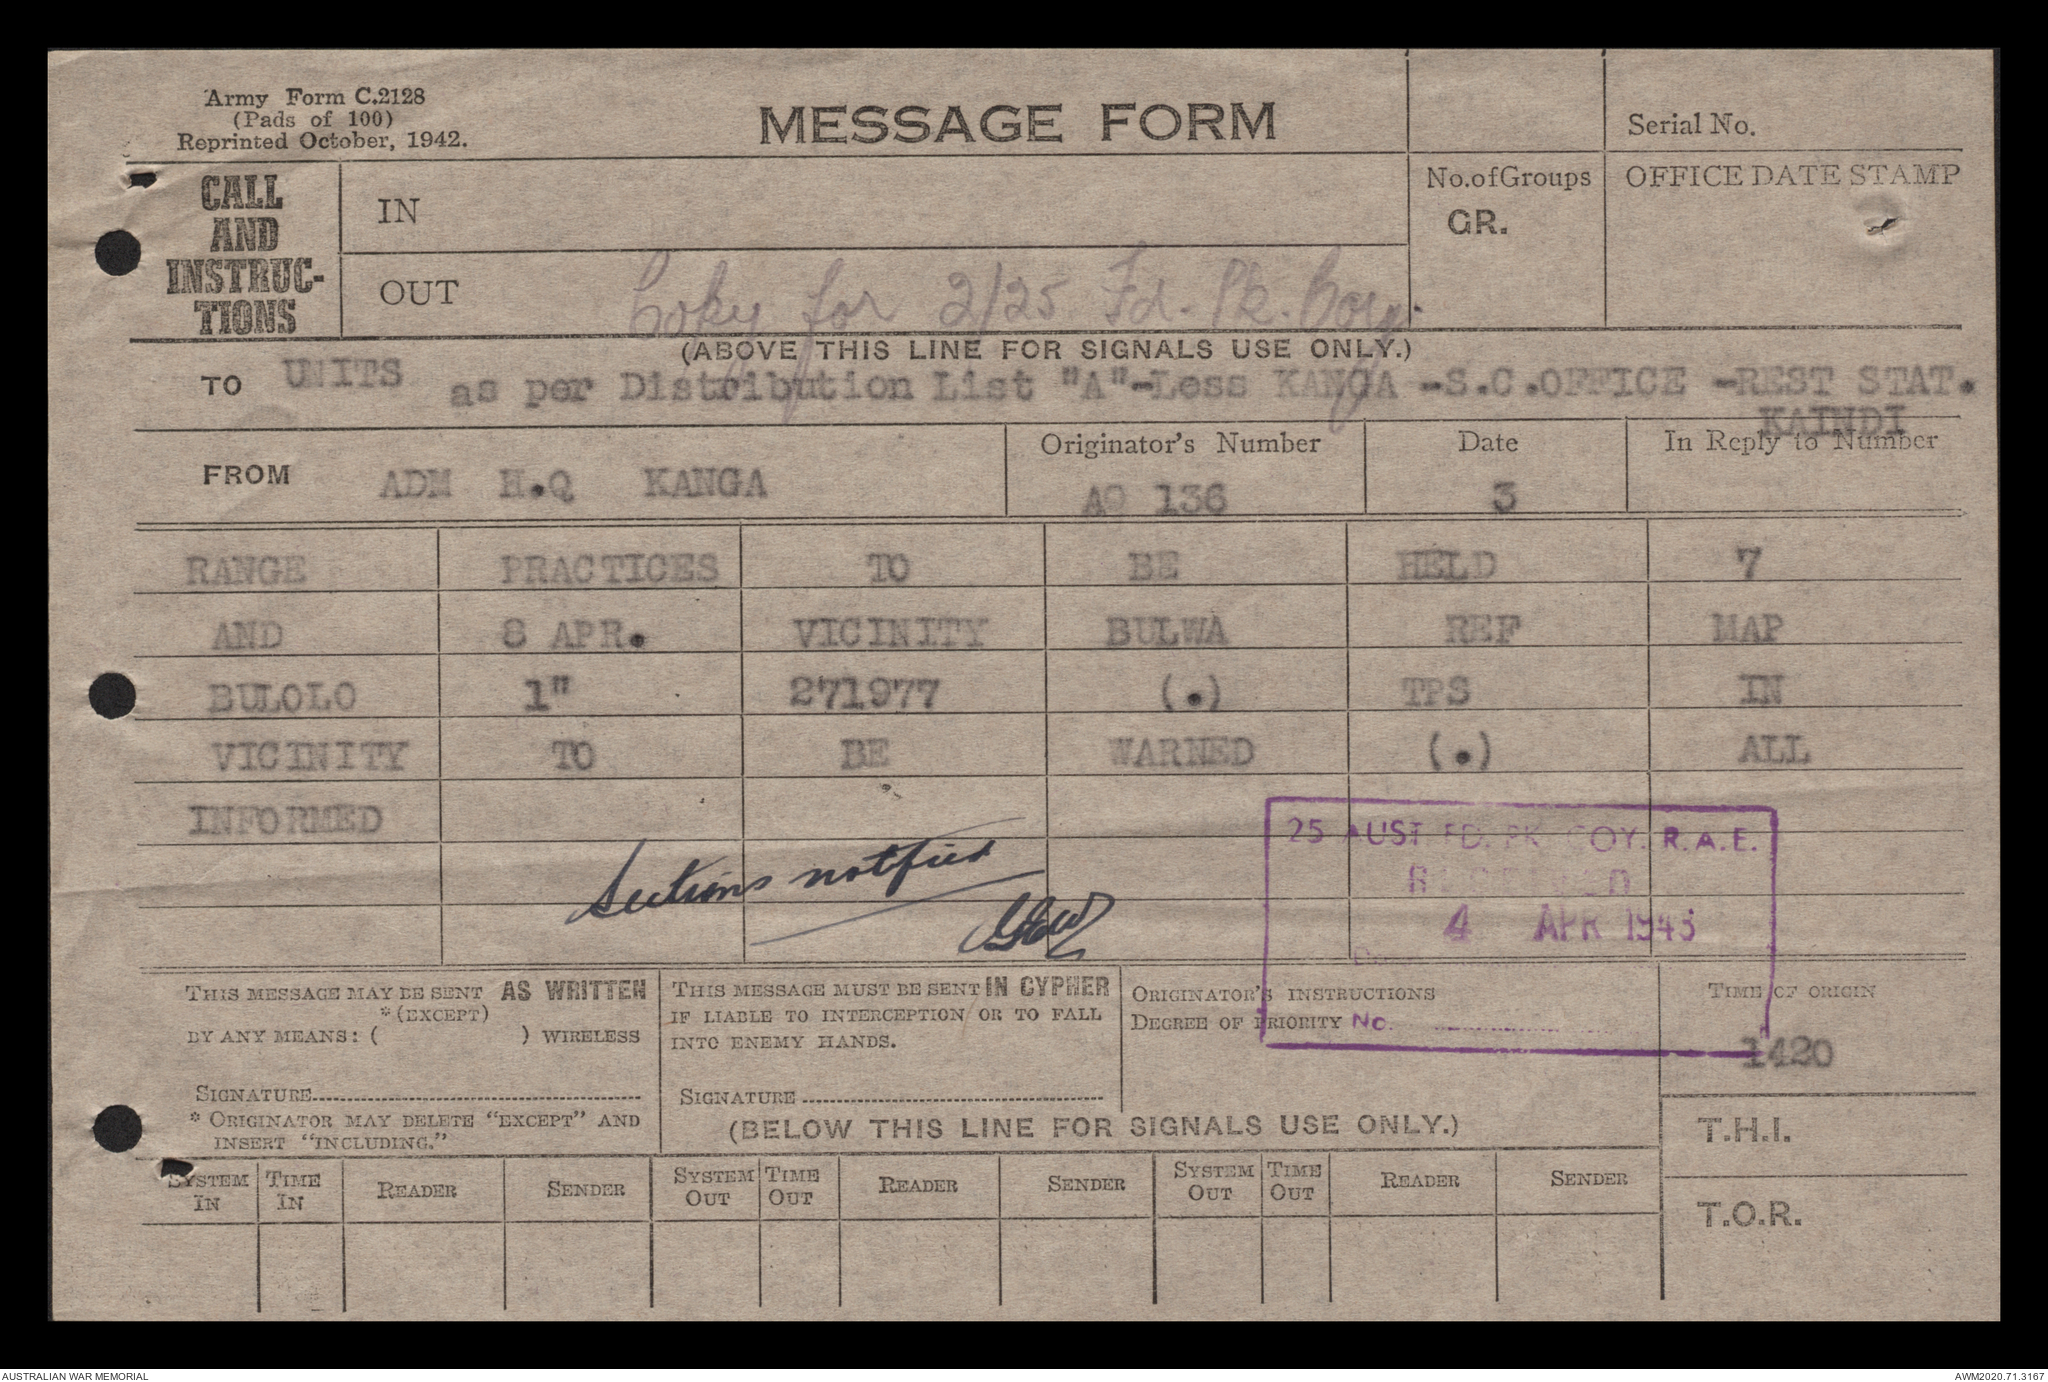 Army Form C.2128
(Pads of 100)
Reprinted October, 1942.
MESSAGE FORM
Serial No.
CALL
AND
INSTRUC-
TIONS
IN
No. of Groups
GR.
OFFICE DATE STAMP
OUT
Copy for 2/25 Fd. Pk. Coy.
(ABOVE THIS LINE FOR SIGNALS USE ONLY.)
TO UNITS as per Distribution List "A"-Less KANGA -S.C.OFFICE -REST STAT.
KAINDI
FROM ADM H.Q KANGA
Originator's Number
AQ 136
Date
3
In Reply to Number
RANGE PRACTICES TO BE HELD 7
AND 8 APR. VICINITY BULWA REF MAP
BULOLO 1" 271977 (.) TPS IN
VICINITY TO BE WARNED (.) ALL
INFORMED
Sections notified
25 AUST. FD. PK. COY. R.A.E.
RECEIVED
4 APR 1943
No.
THIS MESSAGE MAY BE SENT AS WRITTEN
*(EXCEPT)
BY ANY MEANS: ( ) WIRELESS
SIGNATURE
* ORIGINATOR MAY DELETE "EXCEPT" AND
INSERT "INCLUDING."
THIS MESSAGE MUST BE SENT IN CYPHER
IF LIABLE TO INTERCEPTION OR TO FALL
INTO ENEMY HANDS.
SIGNATURE
ORIGINATOR'S INSTRUCTIONS
DEGREE OF PRIORITY
TIME OF ORIGIN
1420
(BELOW THIS LINE FOR SIGNALS USE ONLY.)
T.H.I.
T.O.R.
SYSTEM IN TIME IN READER SENDER SYSTEM OUT TIME OUT READER SENDER SYSTEM OUT TIME OUT READER SENDER
AUSTRALIAN WAR MEMORIAL
AWM2020.71.3167